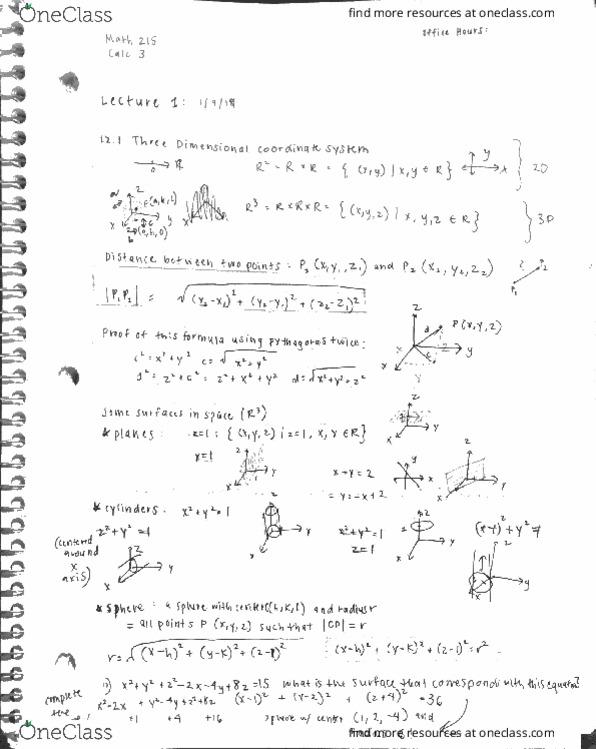 OneClass
find more resources at oneclass.com
Math 215
Calc 3
office Hours:
Lecture 1:
12.1 Three Dimensional coordinate system
R
R² = R × R = { (x,y) | x,y ∈ R }
y
x
2D
R³ = R×R×R = { (x,y,z) | x, y, z ∈ R }
3D
Distance between two points: P₁ (x₁ y₁, z₁) and P₂ (x₂, y₂, z₂)
|P₁P₂| = √(x₂-x₁)² + (y₂-y₁)² + (z₂-z₁)²
P(x,y,z)
Proof of this formula using pythagores twice:
c² = x² + y² c = √x² + y²
d² = z² + c² = z² + x² + y² d = √x² + y² + z²
Some surfaces in space (R³)
* planes: z=1 : { (x,y,z) | z=1, x, y ∈ R }
x + y = 2
= y = -x + 2
* cylinders: x² + y² = 1
z² + y² = 1
(centered around x axis)
x² + y² = 1
z = 1
* Sphere: a sphere with center C(h,k,l) and radius r
= all points P (x,y,z) such that |CP| = r
r = √(x-h)² + (y-k)² + (z-l)²
(x-h)² + (y-k)² + (z-l)² = r²
x² + y² + z² - 2x - 4y + 8z = 15 what is the surface that corresponds with this equation?
complete the
x² - 2x y² - 4y + z² + 8z (x-1)² + (y-2)² + (z+4)² = 36
+1 +4 +16 sphere w/ center (1, 2, -4) and
radius 6
OneClass
find more resources at oneclass.com